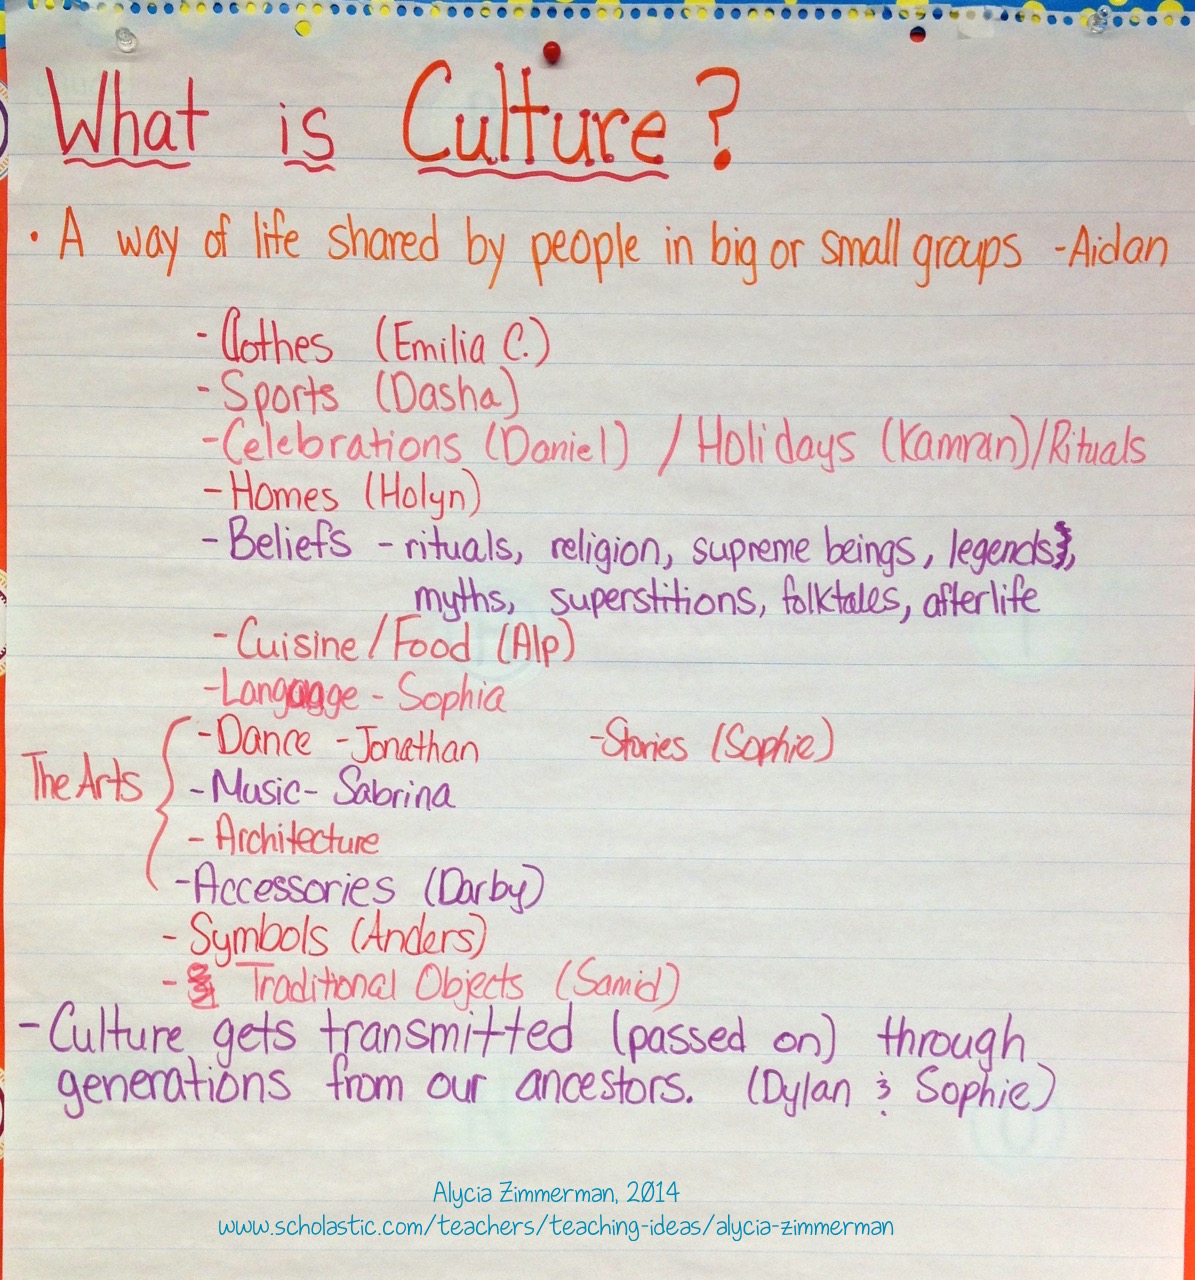 What is Culture?
• A way of life shared by people in big or small groups -Aidan
- Clothes (Emilia C.)
- Sports (Dasha)
- Celebrations (Daniel) / Holidays (Kamran)/Rituals
- Homes (Holyn)
- Beliefs - rituals, religion, supreme beings, legends,
myths, superstitions, folktales, afterlife
- Cuisine/Food (Alp)
- Language - Sophia
- Dance - Jonathan - Stories (Sophie)
The Arts
- Music - Sabrina
- Architecture
- Accessories (Darby)
- Symbols (Anders)
- Traditional Objects (Samid)
- Culture gets transmitted (passed on) through
generations from our ancestors. (Dylan & Sophie)
Alycia Zimmerman, 2014
www.scholastic.com/teachers/teaching-ideas/alycia-zimmerman